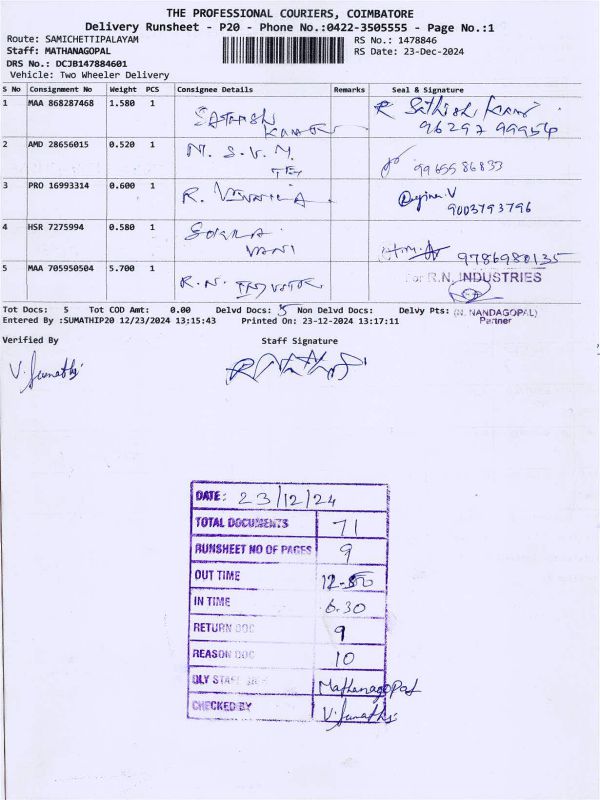 THE PROFESSIONAL COURIERS, COIMBATORE
Delivery Runsheet - P20 - Phone No.:0422-3505555 - Page No.:1
Route: SAMICHETTIPALAYAM RS No.: 1478846
Staff: MATHANAGOPAL RS Date: 23-Dec-2024
DRS No.: DCJB147884601
Vehicle: Two Wheeler Delivery
S No Consignment No Weight PCS Consignee Details Remarks Seal & Signature
1 MAA 868287468 1.580 1 SATHISH KUMAR R Sathish Kumar
96297 99954
2 AMD 28656015 0.520 1 M. S. V. M. TEX 99655 86833
3 PRO 16993314 0.600 1 R. 9003793796
4 HSR 7275994 0.580 1 VANI 9786980135
5 MAA 705950504 5.700 1 R.N. For R.N. INDUSTRIES
(N. NANDAGOPAL)
Partner
Tot Docs: 5 Tot COD Amt: 0.00 Delvd Docs: 5 Non Delvd Docs: Delvy Pts:
Entered By :SUMATHIP20 12/23/2024 13:15:43 Printed On: 23-12-2024 13:17:11
Verified By Staff Signature
V. Sumathi
DATE: 23/12/24
TOTAL DOCUMENTS 71
RUNSHEET NO OF PAGES 9
OUT TIME
IN TIME 6.30
RETURN DOC 9
REASON DOC 10
DLY STAFF Mathanagopal
CHECKED BY V. Sumathi